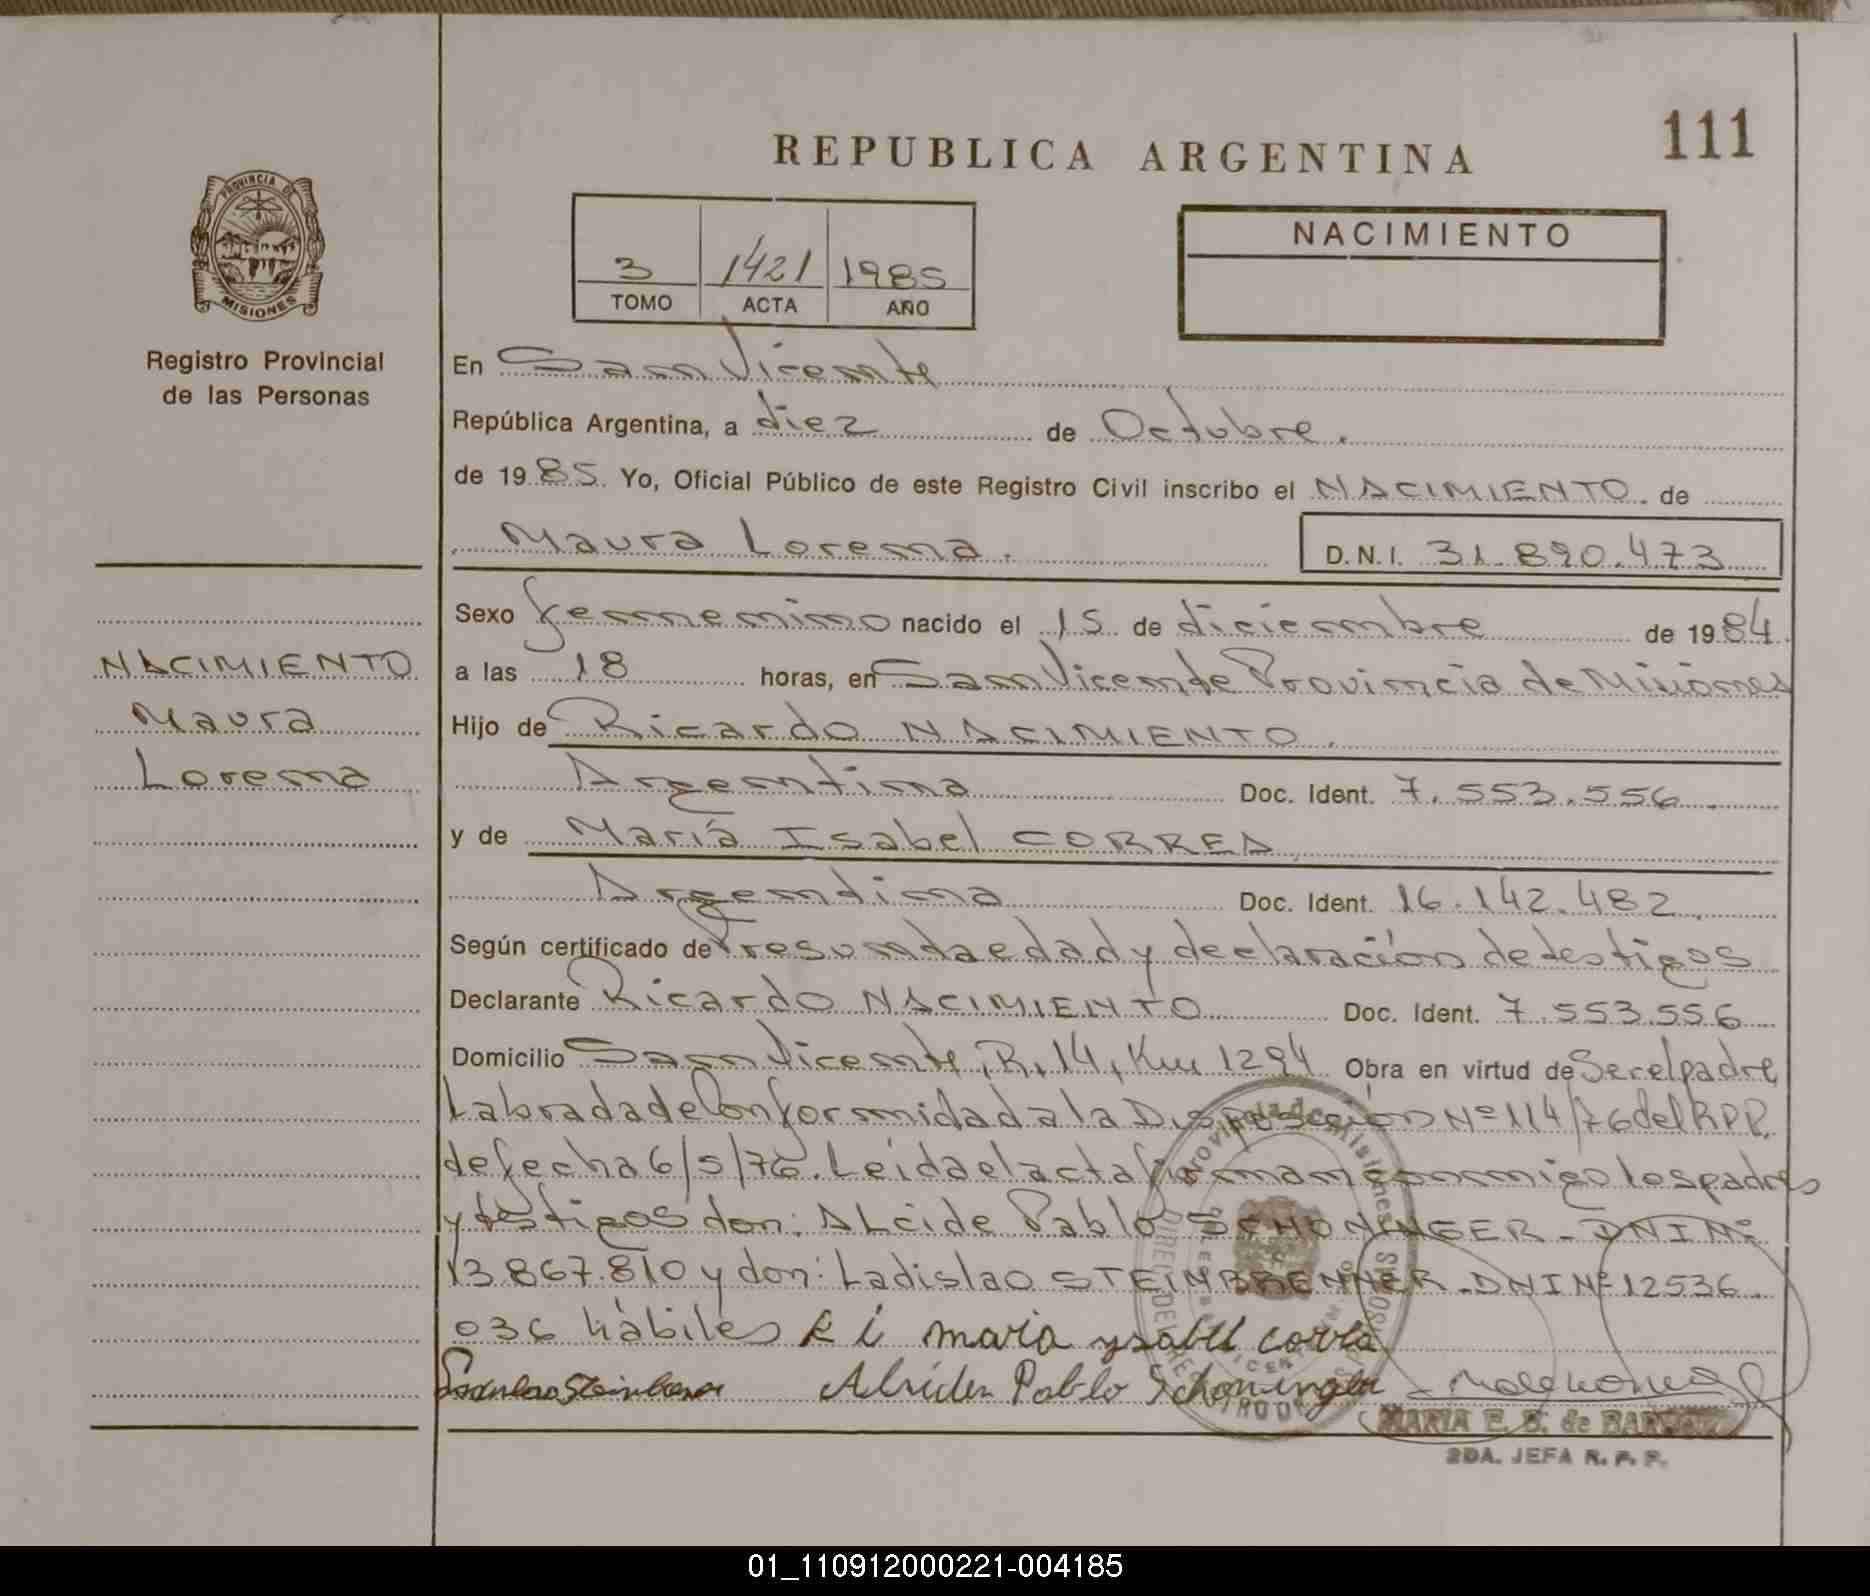 111
REPUBLICA ARGENTINA
PROVINCIA DE
MISIONES
Registro Provincial
de las Personas
3 1421 1985
TOMO ACTA AÑO
NACIMIENTO
En San Vicente
República Argentina, a diez de Octubre.
de 1985. Yo, Oficial Público de este Registro Civil inscribo el NACIMIENTO de
Maura Lorena.
D.N.I. 31.890.473
Sexo femenino nacido el 15 de diciembre de 1984.
a las 18 horas, en San Vicente Provincia de Misiones
Hijo de Ricardo NACIMIENTO.
Argentina Doc. Ident. 7.553.556.
y de María Isabel CORREA
Argentina Doc. Ident. 16.142.482.
Según certificado de Presunta edad y declaración de testigos
Declarante Ricardo NACIMIENTO Doc. Ident. 7.553.556
Domicilio San Vicente, R, 14, Km 1294 Obra en virtud de Ser el padre,
Labrada de Conformidad a la Disposición Nº 114/76 del R.P.P.
de fecha 6/5/76. Leída el acta firman conmigo los padres
y testigos don: ALcide Pablo SCHONINGER - DNI Nº
13.867.810 y don: Ladislao STEINBRENNER - DNI Nº 12536
036 hábiles R i maria ysabel correa
Pablo Schoninger
MARIA E. B. de
2DA. JEFA R. P. P.
NACIMIENTO
Maura
Lorena
Provincia de Misiones
01_110912000221-004185